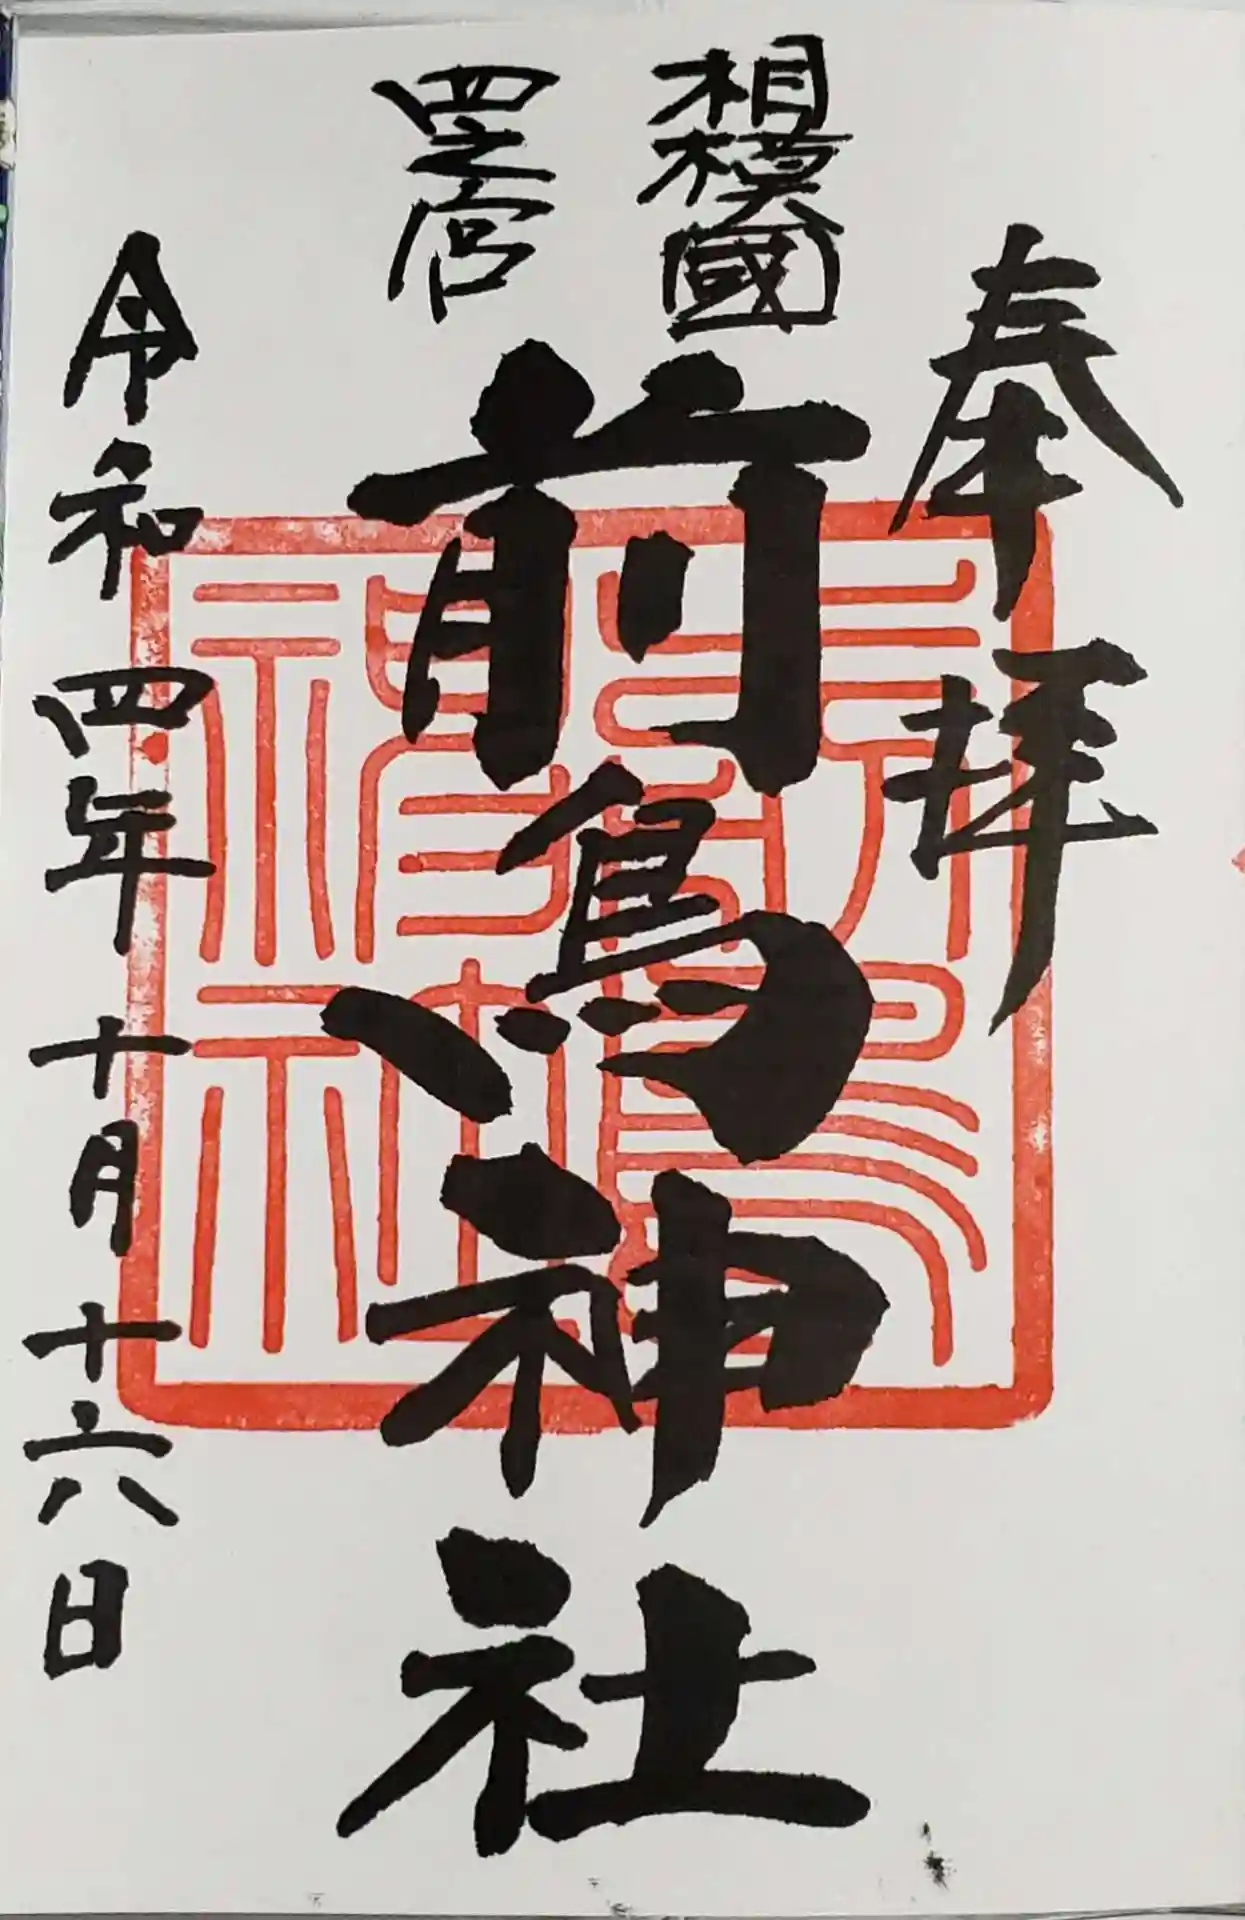 奉拝
相模國
四之宮
前鳥神社
令和四年十月十六日
前鳥神社